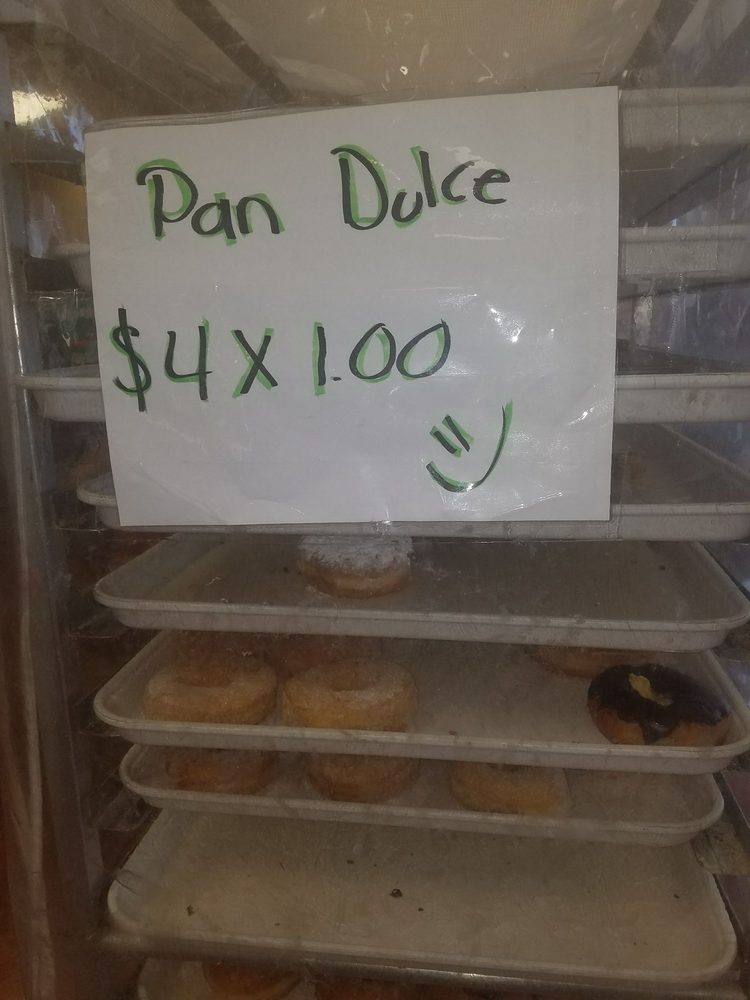 Pan Dulce
$4 X 1.00